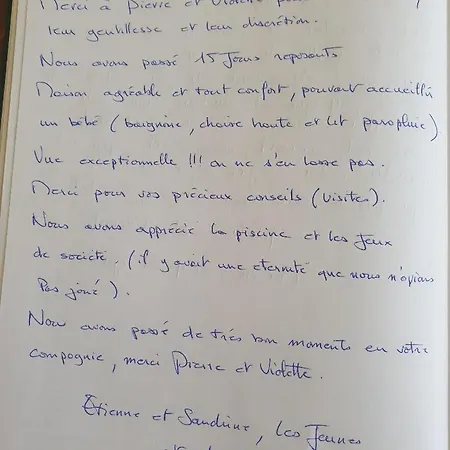 Merci à Pierre et Violette
leur gentillesse et leur discrétion.
Nous avons passé 15 Jours reposants
Maison agréable et tout confort, pouvant accueillir
un bébé (baignoire, chaise haute et lit parapluie)
Vue exceptionnelle !!! on ne s'en lasse pas.
Merci pour vos précieux conseils (visites).
Nous avons apprécié la piscine et les Jeux
de société. (il y avait une eternité que nous n'avions
Pas joué).
Nous avons passé de très bon moments en votre
compagnie, merci Pierre et Violette.
Etienne et Sandrine, les Jeunes